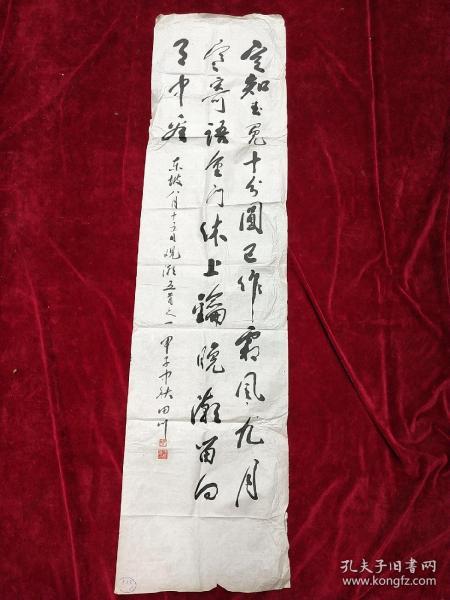 定知玉兔十分圓已作霜風九月
寒寄語重门休上鑰晚潮留向
月中看
东坡八月十五日观潮五首之一 甲子中秋田川
孔夫子旧书网
www.kongfz.com